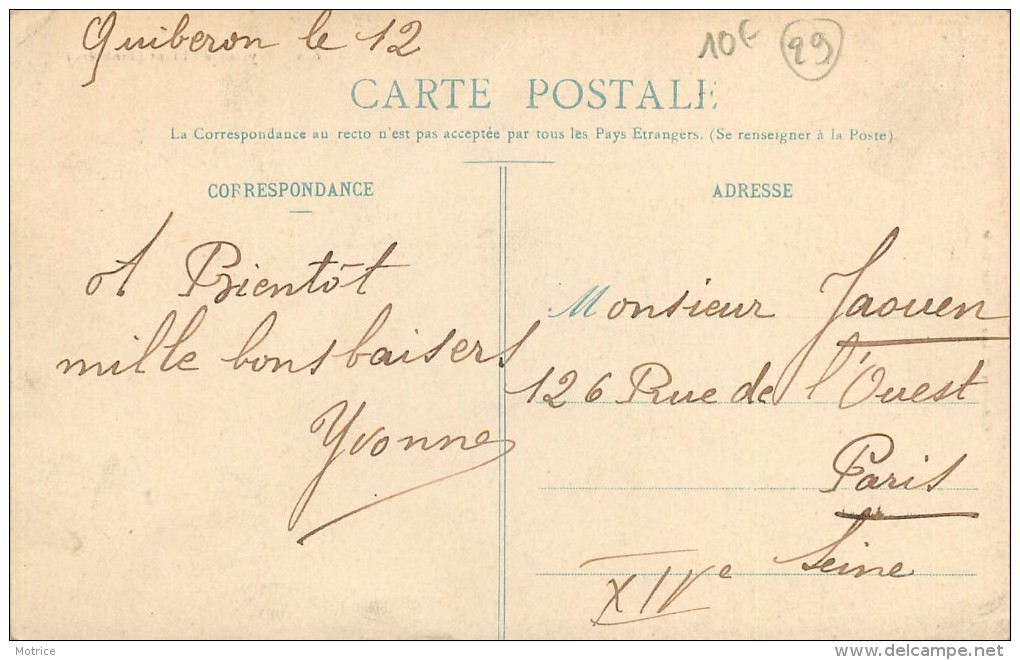 Quiberon le 12
10€
29
CARTE POSTALE
La Correspondance au recto n'est pas acceptée par tous les Pays Etrangers. (Se renseigner à la Poste)
CORRESPONDANCE
A Bientôt
mille bons baisers
Yvonne
ADRESSE
Monsieur Jaouen
126 Rue de l'Ouest
Paris
Seine
XIVe
Motrice
delcampe.net